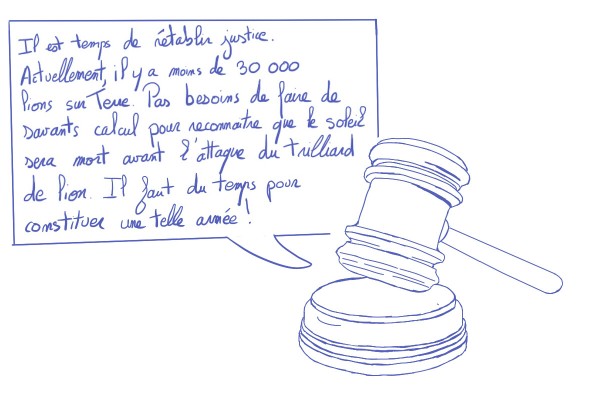 Il est temps de rétablir justice.
Actuellement, il y a moins de 30 000
lions sur Terre. Pas besoins de faire de
savants calcul pour reconnaitre que le soleil
sera mort avant l'attaque du trilliard
de lion. Il faut du temps pour
constituer une telle armée !